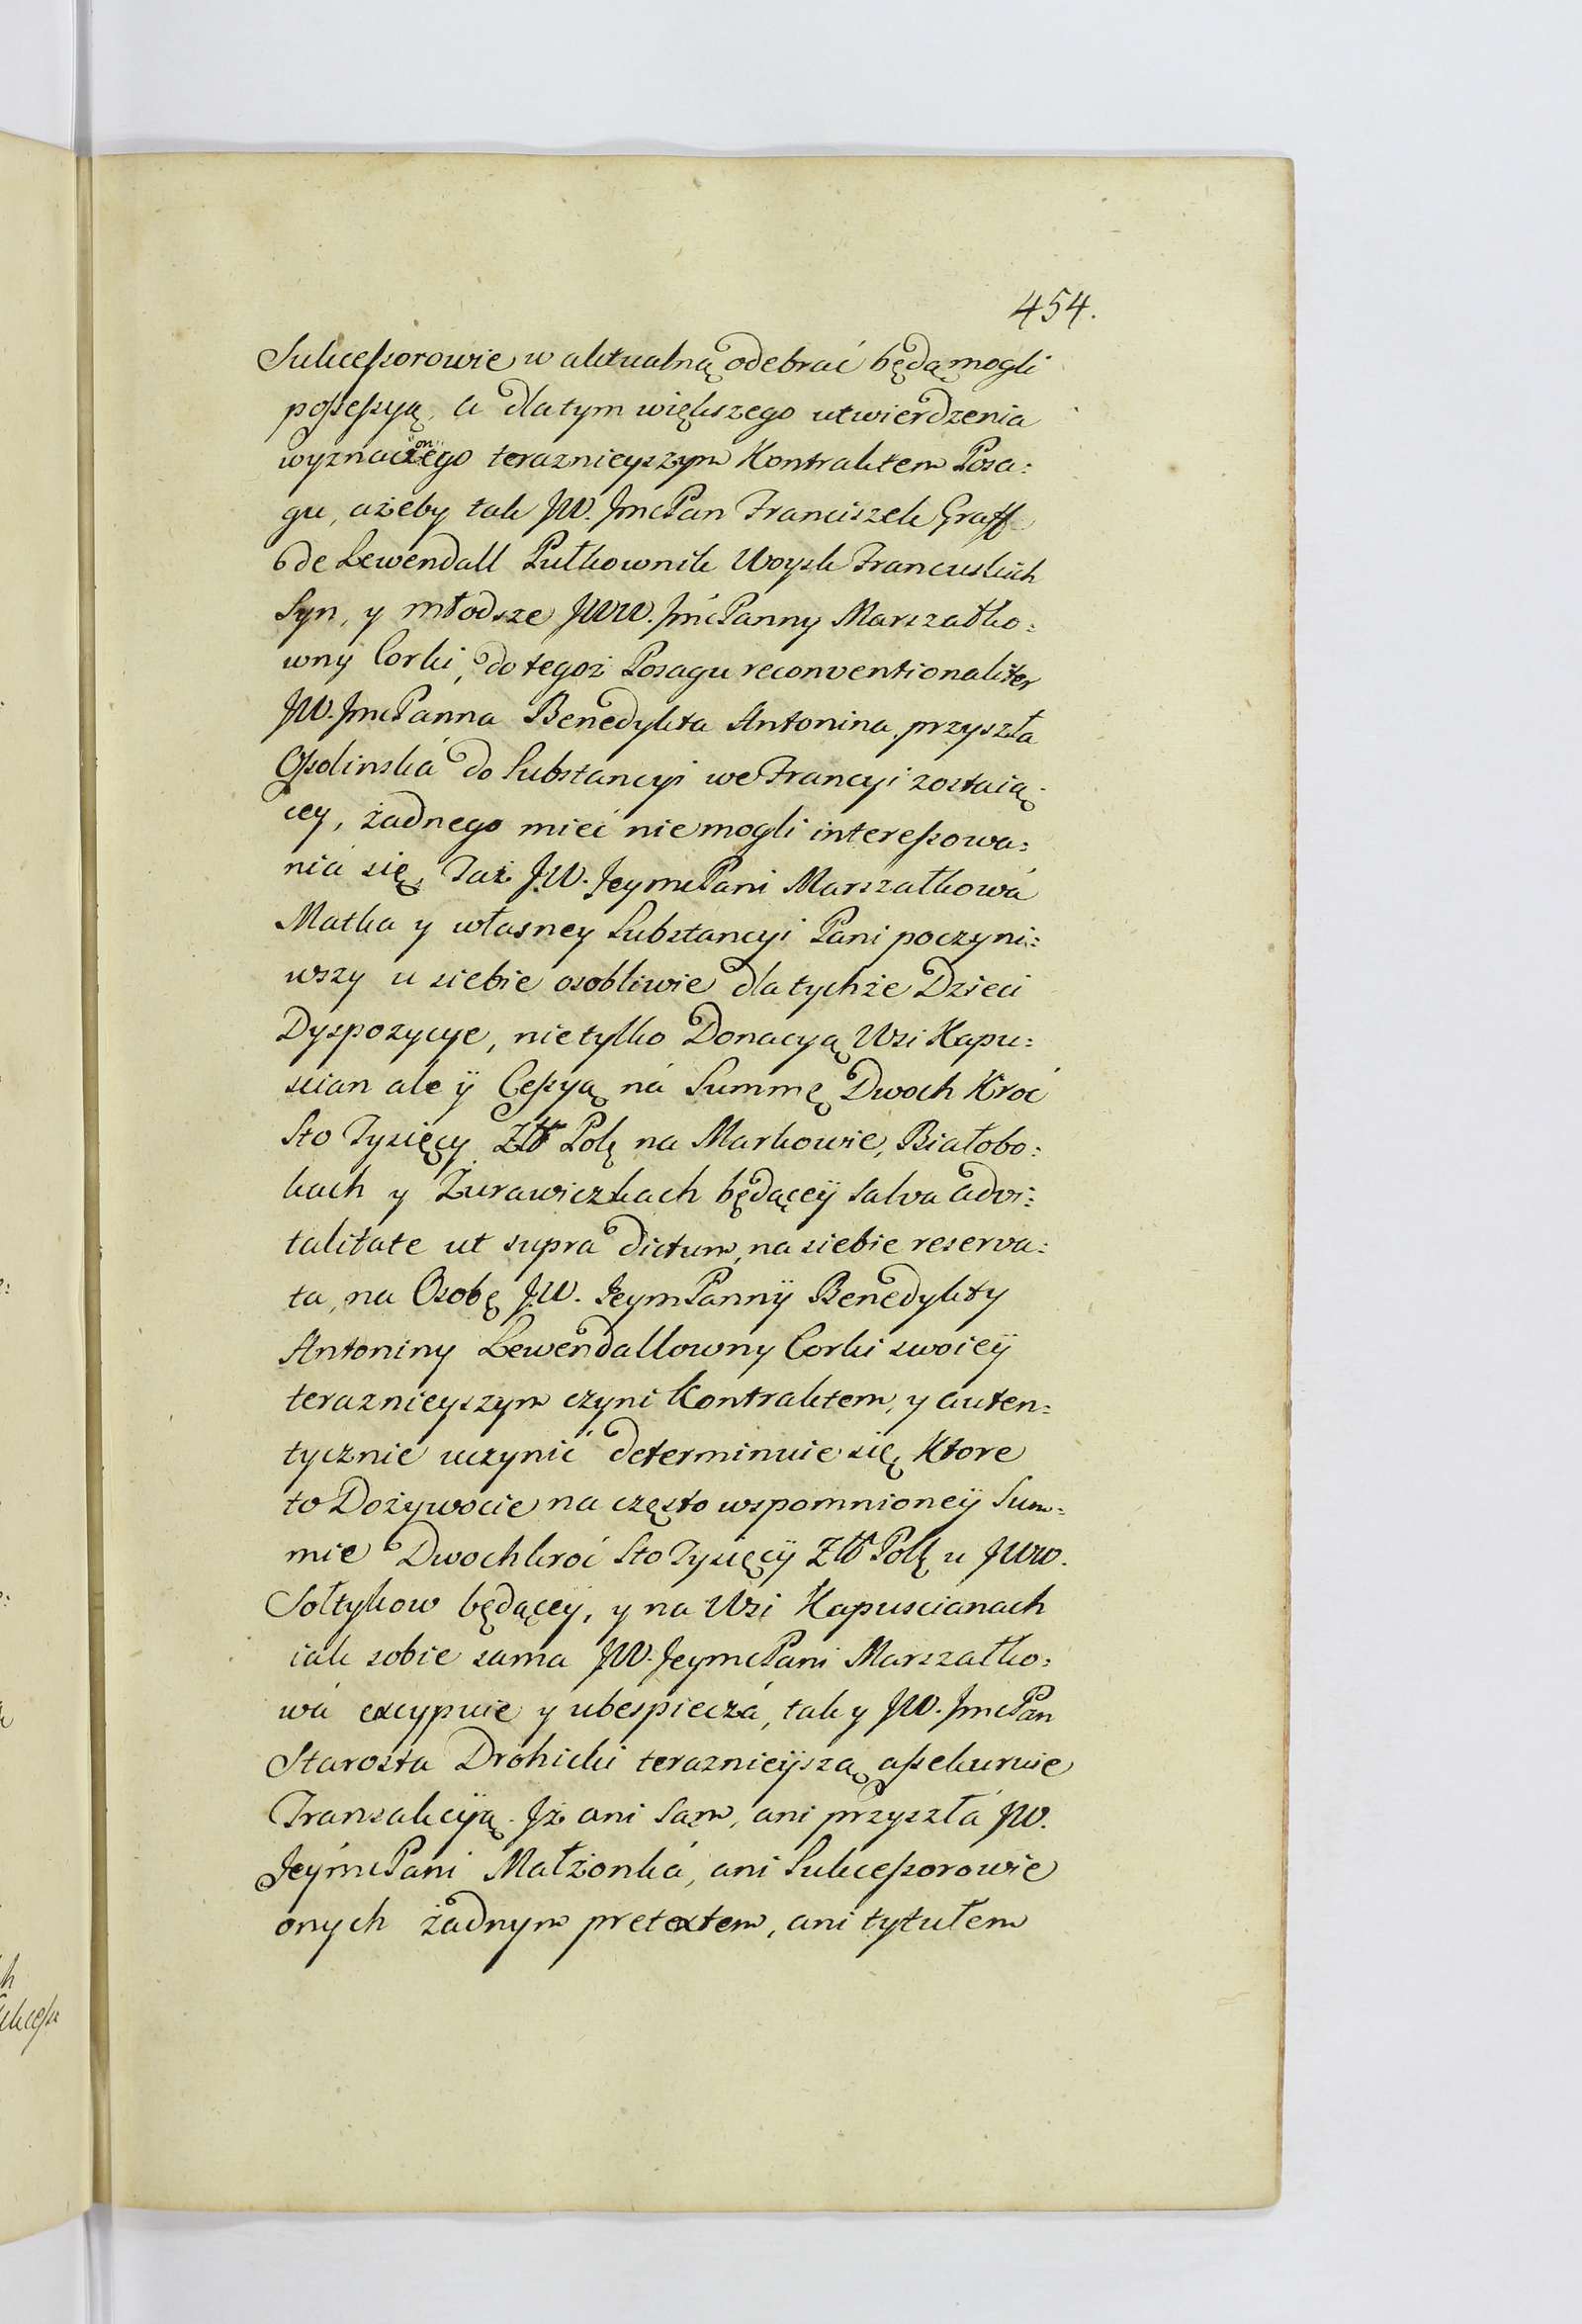 454.
Sukceſsorowie w aktualną odebrać będą mogli
poſseſsyą, a dla tym większego utwierdzenia
wyznaczonego teraznieyszym Kontraktem Posa:
gu, ażeby tak JW. JmcPan Franciszek Graff
de Lewendall Pułkownik Woysk Francuskich
Syn, y młodsze JWW. JmćPanny Marszałko:
wny Corki, do tegoż Posagu reconventionaliter
JW. JmcPanna Benedykta Antonina przyszła
Oſsolinská do Substancyi we Francyi zostaią:
cey, żadnego mieć nie mogli intereſsowa:
niá się, Taż JW. JeymcPani Marszałkowá
Matka y własney Substancyi Pani poczyni:
wszy u siebie osobliwie dla tychże Dzieci
Dyspozycye, nietylko Donacyą Wsi Kapu:
scian ale ÿ Ceſsyą ná Summę Dwoch Kroć
Sto Tysięcy Złł Polę na Markowie, Białobo:
kach y Żurawiczkach będącęÿ salva advi:
talitate ut supra dictum, na siebie reserva:
ta, na Osobę JW. JeymPannÿ Benedykty
Antoniny Lewendallowny Corki swoieÿ
teraznieyszym czyni Kontraktem, y auten:
tycznie uczynić determinuie się, Ktore
to Dożywocie na często wspomnioneÿ Sum:
mie Dwochkroć Sto Tysięcÿ Złł Polę u JWW.
Sołtykow będącęy, y na Wsi Kapuscianach
iak sobie sama JW. JeymcPani Marszałko:
wá excypuie y ubespieczá, tak y JW. JmcPan
Starosta Drohicki terazniejszą aſsekuruie
Transakcÿą. Jż ani Sam, ani przyszłá JW.
JeÿmcPani Małżonká, ani Sukceſsorowie
onych żadnym pretextem, ani tytułem